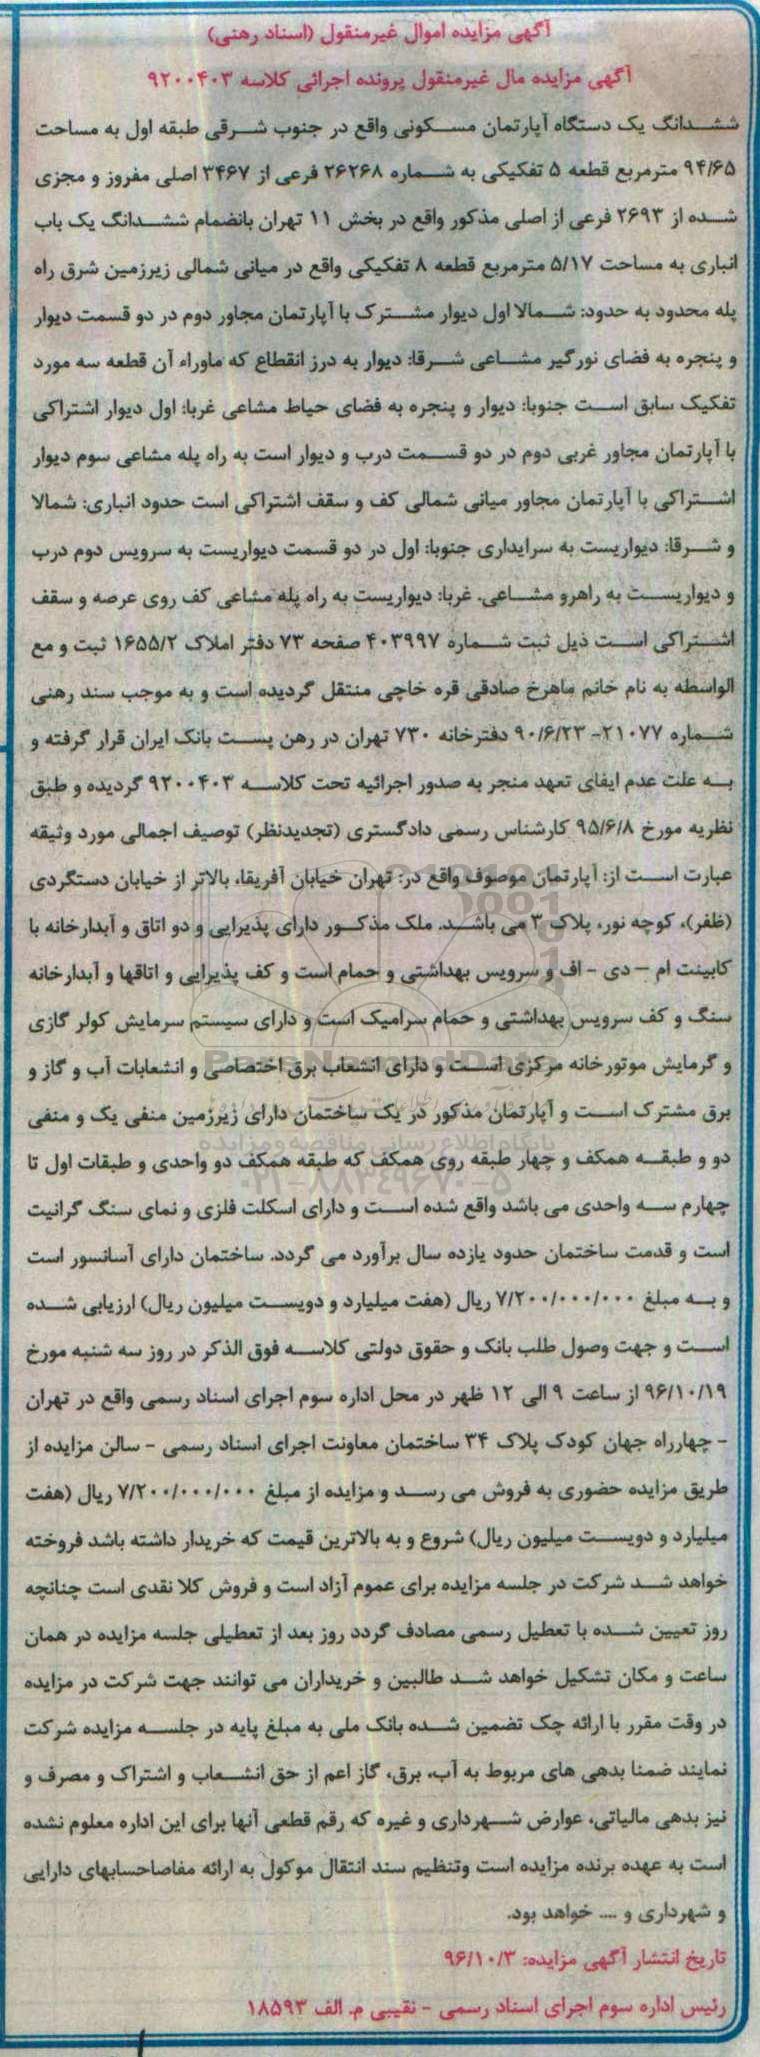 آگهی مزایده اموال غیرمنقول (اسناد رهنی)
آگهی مزایده مال غیرمنقول پرونده اجرائی کلاسه ۹۲۰۰۴۰۳
ششدانگ یک دستگاه آپارتمان مسکونی واقع در جنوب شرقی طبقه اول به مساحت
۹۴/۶۵ مترمربع قطعه ۵ تفکیکی به شماره ۲۶۲۶۸ فرعی از ۳۴۶۷ اصلی مفروز و مجزی
شده از ۲۶۹۳ فرعی از اصلی مذکور واقع در بخش ۱۱ تهران بانضمام ششدانگ یک باب
انباری به مساحت ۵/۱۷ مترمربع قطعه ۸ تفکیکی واقع در میانی شمالی زیرزمین شرق راه
پله محدود به حدود: شمالا اول دیوار مشترک با آپارتمان مجاور دوم در دو قسمت دیوار
و پنجره به فضای نورگیر مشاعی شرقا: دیوار به درز انقطاع که ماوراء آن قطعه سه مورد
تفکیک سابق است جنوبا: دیوار و پنجره به فضای حیاط مشاعی غربا: اول دیوار اشتراکی
با آپارتمان مجاور غربی دوم در دو قسمت درب و دیوار است به راه پله مشاعی سوم دیوار
اشتراکی با آپارتمان مجاور میانی شمالی کف و سقف اشتراکی است حدود انباری: شمالا
و شرقا: دیواریست به سرایداری جنوبا: اول در دو قسمت دیواریست به سرویس دوم درب
و دیواریست به راهرو مشاعی. غربا: دیواریست به راه پله مشاعی کف روی عرصه و سقف
اشتراکی است ذیل ثبت شماره ۴۰۳۹۹۷ صفحه ۷۳ دفتر املاک ۱۶۵۵/۲ ثبت و مع
الواسطه به نام خانم ماهرخ صادقی قره خاچی منتقل گردیده است و به موجب سند رهنی
شماره ۲۱۰۷۷- ۹۰/۶/۲۳ دفترخانه ۷۳۰ تهران در رهن پست بانک ایران قرار گرفته و
به علت عدم ایفای تعهد منجر به صدور اجرائیه تحت کلاسه ۹۲۰۰۴۰۳ گردیده و طبق
نظریه مورخ ۹۵/۶/۸ کارشناس رسمی دادگستری (تجدیدنظر) توصیف اجمالی مورد وثیقه
عبارت است از: آپارتمان موصوف واقع در: تهران خیابان آفریقا، بالاتر از خیابان دستگردی
(ظفر)، کوچه نور، پلاک ۳ می باشد. ملک مذکور دارای پذیرایی و دو اتاق و آبدارخانه با
کابینت ام – دی - اف و سرویس بهداشتی و حمام است و کف پذیرایی و اتاقها و آبدارخانه
سنگ و کف سرویس بهداشتی و حمام سرامیک است و دارای سیستم سرمایش کولر گازی
و گرمایش موتورخانه مرکزی است و دارای انشعاب برق اختصاصی و انشعابات آب و گاز و
برق مشترک است و آپارتمان مذکور در یک ساختمان دارای زیرزمین منفی یک و منفی
دو و طبقه همکف و چهار طبقه روی همکف که طبقه همکف دو واحدی و طبقات اول تا
چهارم سه واحدی می باشد واقع شده است و دارای اسکلت فلزی و نمای سنگ گرانیت
است و قدمت ساختمان حدود یازده سال برآورد می گردد. ساختمان دارای آسانسور است
و به مبلغ ۷/۲۰۰/۰۰۰/۰۰۰ ریال (هفت میلیارد و دویست میلیون ریال) ارزیابی شده
است و جهت وصول طلب بانک و حقوق دولتی کلاسه فوق الذکر در روز سه شنبه مورخ
۹۶/۱۰/۱۹ از ساعت ۹ الی ۱۲ ظهر در محل اداره سوم اجرای اسناد رسمی واقع در تهران
- چهارراه جهان کودک پلاک ۳۴ ساختمان معاونت اجرای اسناد رسمی - سالن مزایده از
طریق مزایده حضوری به فروش می رسد و مزایده از مبلغ ۷/۲۰۰/۰۰۰/۰۰۰ ریال (هفت
میلیارد و دویست میلیون ریال) شروع و به بالاترین قیمت که خریدار داشته باشد فروخته
خواهد شد شرکت در جلسه مزایده برای عموم آزاد است و فروش کلا نقدی است چنانچه
روز تعیین شده با تعطیل رسمی مصادف گردد روز بعد از تعطیلی جلسه مزایده در همان
ساعت و مکان تشکیل خواهد شد طالبین و خریداران می توانند جهت شرکت در مزایده
در وقت مقرر با ارائه چک تضمین شده بانک ملی به مبلغ پایه در جلسه مزایده شرکت
نمایند ضمنا بدهی های مربوط به آب، برق، گاز اعم از حق انشعاب و اشتراک و مصرف و
نیز بدهی مالیاتی، عوارض شهرداری و غیره که رقم قطعی آنها برای این اداره معلوم نشده
است به عهده برنده مزایده است وتنظیم سند انتقال موکول به ارائه مفاصاحسابهای دارایی
و شهرداری و .... خواهد بود.
تاریخ انتشار آگهی مزایده: ۹۶/۱۰/۳
رئیس اداره سوم اجرای اسناد رسمی - نقیبی م. الف ۱۸۵۹۳
ParsNamadData
پایگاه اطلاع رسانی مناقصه و مزایده
۰۲۱-۸۸۳۴۹۶۷۰-۵